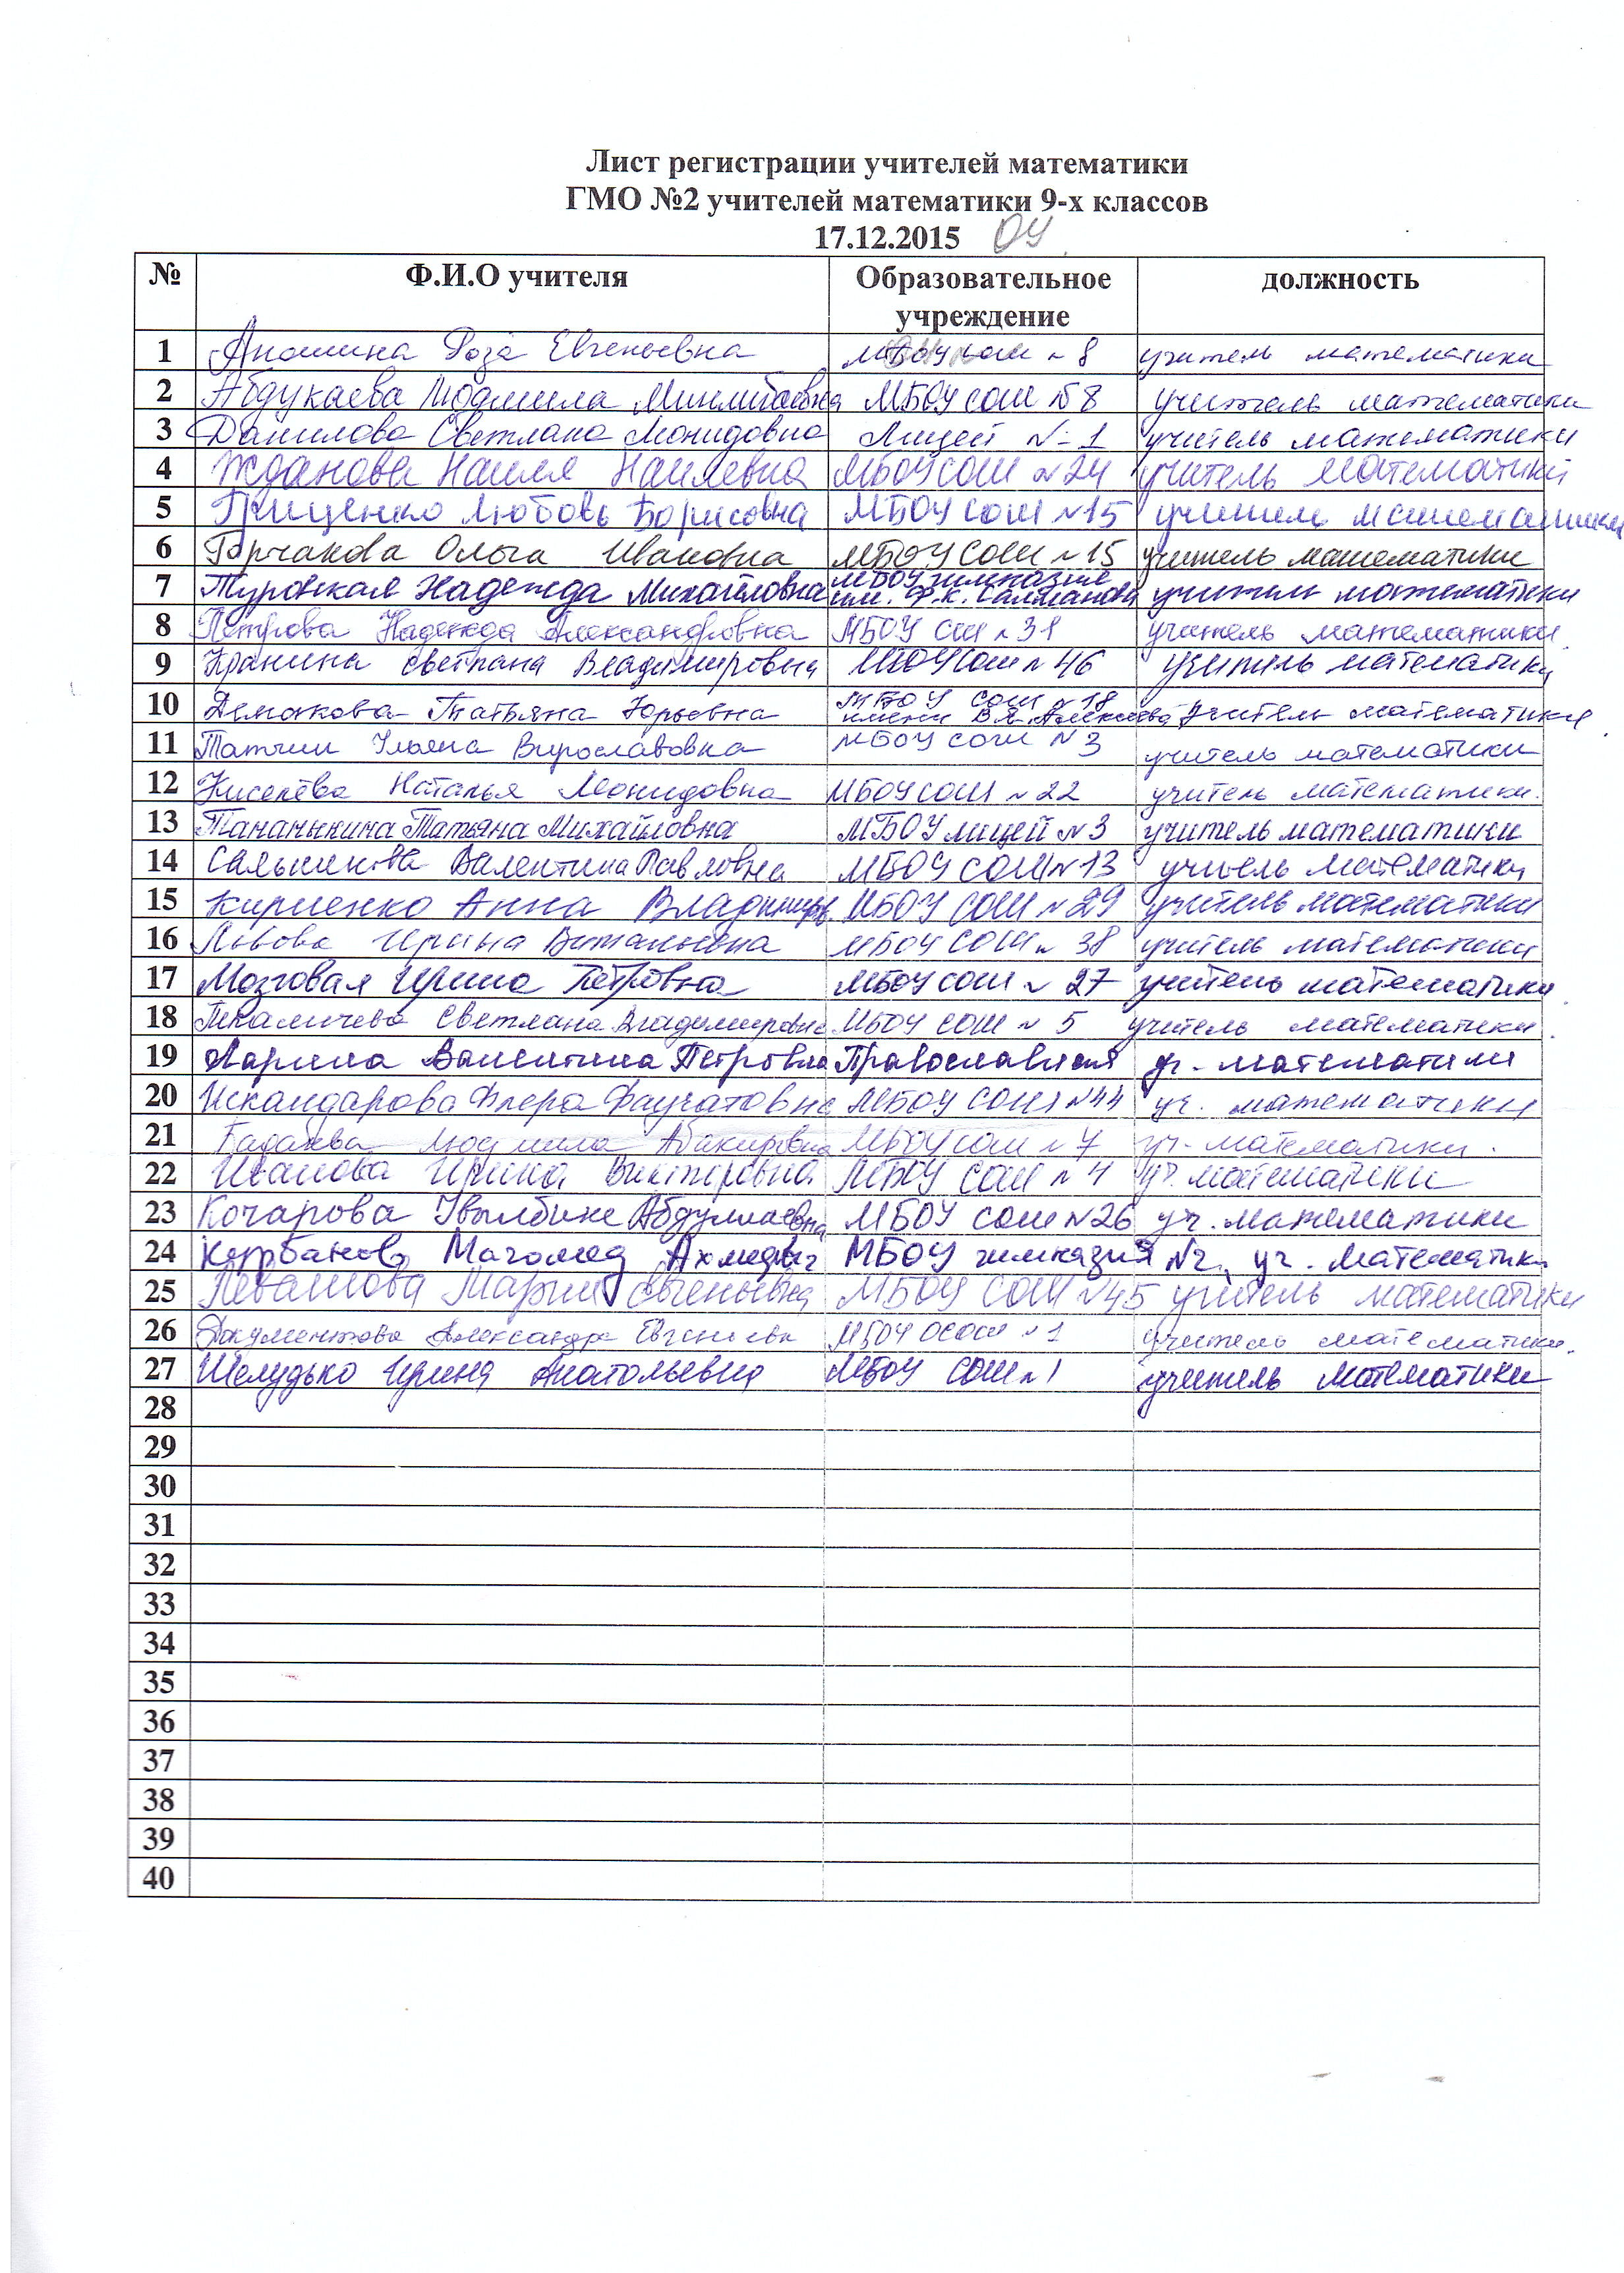 Лист регистрации учителей математики
ГМО №2 учителей математики 9-х классов
17.12.2015 ОУ
№ Ф.И.О учителя Образовательное учреждение должность
1 Аношина Роза Евгеньевна МБОУ СОШ № 8 учитель математики
2 Абдукаева Людмила Минлибаевна МБОУ СОШ №8 учитель математики
3 Данилова Светлана Леонидовна Лицей №1 учитель математики
4 Жданова Наиля Наилевна МБОУ СОШ №24 учитель математики
5 Грищенко Любовь Борисовна МБОУ СОШ №15 учитель математики
6 Горчакова Ольга Ивановна МБОУ СОШ №15 учитель математики
7 Туровская Надежда Михайловна МБОУ гимназия им. Ф.К. Салманова учитель математики
8 Петрова Надежда Александровна МБОУ СШ №31 учитель математики
9 Кранина Светлана Владимировна МБОУ СОШ №46 учитель математики
10 Демакова Татьяна Юрьевна МБОУ СОШ №18 имени В.Я. Алексеева учитель математики
11 Татчин Ульяна Вирославовна МБОУ СОШ №3 учитель математики
12 Киселёва Наталья Леонидовна МБОУ СОШ №22 учитель математики.
13 Татьяна Михайловна МБОУ лицей №3 учитель математики
14 Сальникова Валентина Павловна МБОУ СОШ №13 учитель математики
15 Кириенко Анна Владимиров. МБОУ СОШ №29 учитель математики
16 Львова Ирина Витальевна МБОУ СОШ № 38 учитель математики
17 Мозговая Ирина Петровна МБОУ СОШ № 27 учитель математики
18 Ткаличева Светлана Владимировна МБОУ СОШ № 5 учитель математики.
19 Ларина Валентина Петровна Православная уч. математики
20 Искандарова Флера Фаучатовна МБОУ СОШ №44 уч. математики
21 Людмила Абакировна МБОУ СОШ №7 уч. математики.
22 Иванова Ирина Викторовна МБОУ СОШ №4 уч. математики
23 Кочарова Абдуллаевна МБОУ СОШ №26 уч. математики
24 Курбанов Магомед Ахмедович МБОУ гимназия №2, уч. математики
25 Левашова Мария Евгеньевна МБОУ СОШ №45 учитель математики
26 Александра Евгеньевна МБОУ ОСОШ №1 учитель математики.
27 Шелудько Ирина Анатольевна МБОУ СОШ №1 учитель математики
28
29
30
31
32
33
34
35
36
37
38
39
40